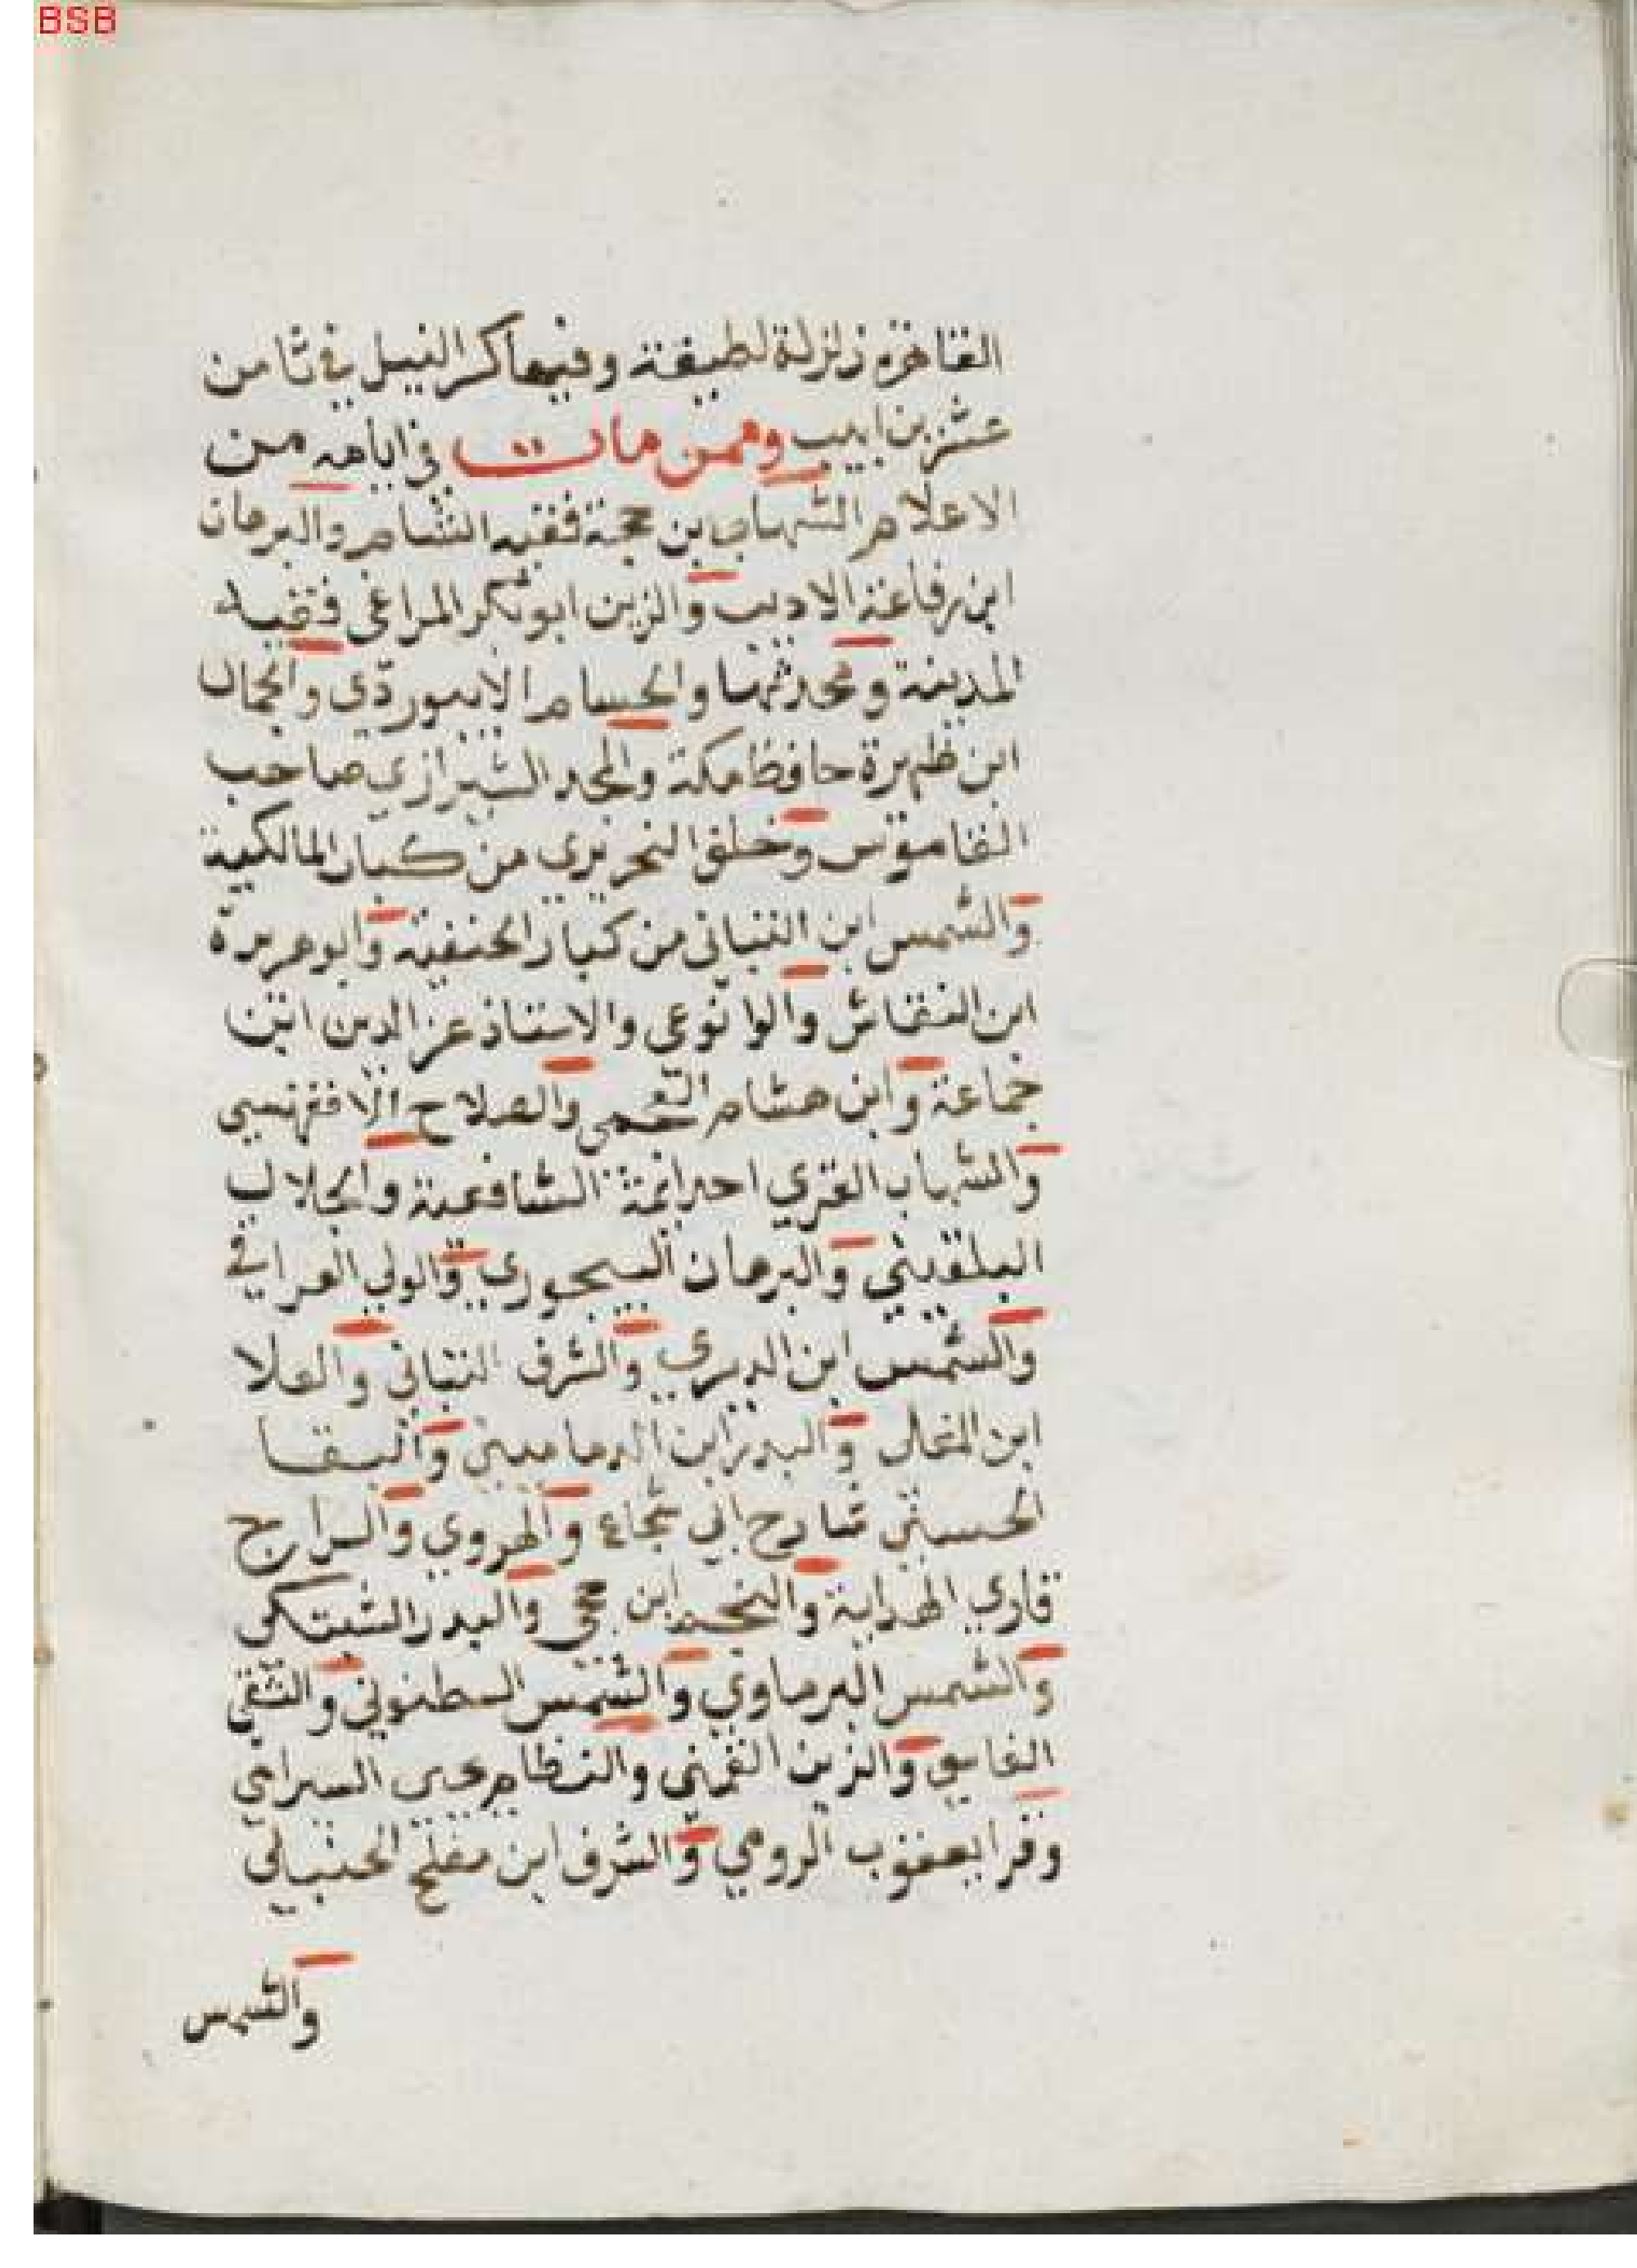 BSB
القاهرة زلزلة لطيفة وفيها كسر النيل في ثامن
عشر بن ابيب وممن مات في ايامه من
الاعلام الشهاب بن حجة فقيه الشام والبرهان
ابن رفاعة الاديب والزين ابو بكر المراغي فقيه
المدينة ومحدثها والحسام الابيوردي والجمال
ابن ظهيرة حافظ مكة والمجد الشيرازي صاحب
القاموس وخلق النحريري من كبار المالكية
والشمس ابن التباني من كبار الحنفية وابو هريرة
ابن النقاش والوانوعي والاستاذ عز الدين ابن
جماعة وابن هشام العجمي والصلاح الاقفهسي
والشهاب الغزي احد ائمة الشافعية والجلال
البلقيني والبرهان البيجوري والولي العراقي
والشمس ابن الديري والشرف التباني والعلا
ابن المغلي والبدر ابن الدماميني والبقا
الحسيني شارح ابي شجاع والهروي والسراج
قاري الهداية والنجم ابن حجي والبدر الشبتكي
والشمس البرماوي والشمس السطنوفي والتقي
الفاسي والزين القمني والنظام يحيى السيرامي
وقرا يعقوب الرومي والشرف ابن مفلح الحنبلي
والشمس